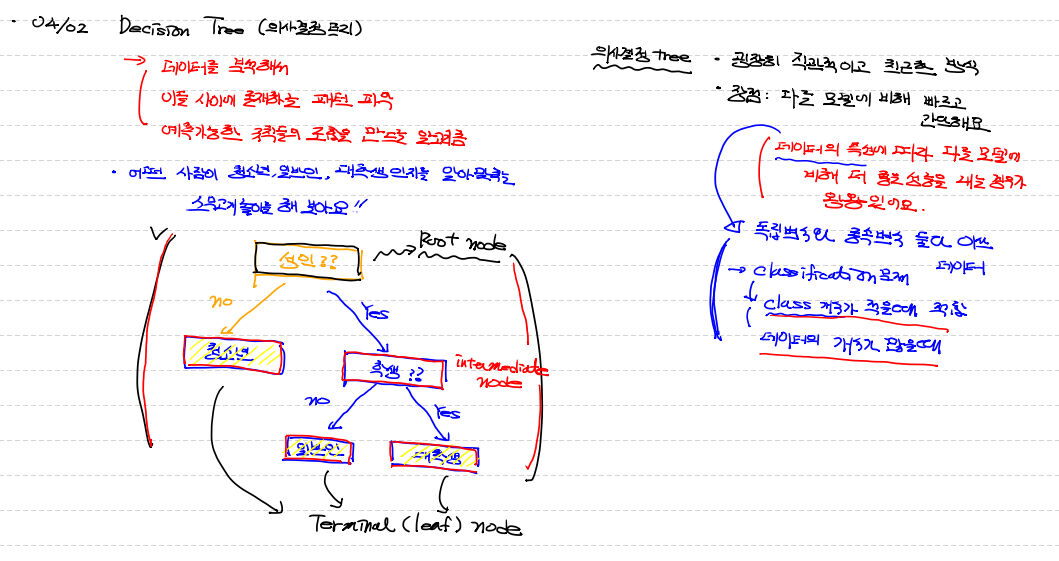 · 04/02 Decision Tree (의사결정트리)
→ 데이터를 분석해서
이들 사이에 존재하는 패턴 파악
예측가능한 규칙들의 조합을 만드는 알고리즘
· 어떤 사람이 청소년, 일반인, 대학생인지를 알아맞추는
스무고개놀이를 해 보아요!!
성인??
Root node
no
Yes
청소년
학생??
intermediate
node
no
Yes
일반인
대학생
Terminal (leaf) node
의사결정 tree
· 굉장히 직관적이고 친근한 방식
· 장점: 다른 모델에 비해 빠르고
간단해요
데이터의 특성에 따라 다른 모델에
비해 더 좋은 성능을 내는 경우가
왕왕 있어요.
독립변수와 종속변수 둘다 이산
데이터
→ Classification문제
Class 개수가 적을때 적합
데이터의 개수가 많을때